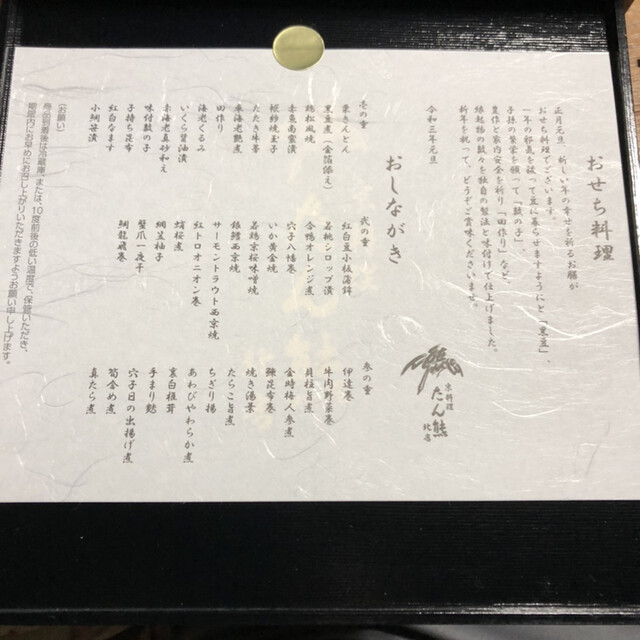 おせち料理
正月元旦 新しい年の幸せを祈るお膳が
おせち料理でございます。
一年の邪気を祓って豆に暮らせますようにと「黒豆」、
子孫の繁栄を願って「数の子」
豊作と家内安全を祈り「田作り」など、
縁起物の数々を独自の製法と味付けで仕上げました。
新年を祝って、どうぞご賞味くださいませ。
令和三年元旦
京料理
たん熊
北店
おしながき
壱の重
栗きんとん
黒豆煮(金箔添え)
鶏松風焼
赤蒟蒻蜜漬
袱紗焼玉子
たたき牛蒡
車海老艶煮
田作り
海老くるみ
いくら醤油漬
赤海老真砂和え
味付数の子
子持ち昆布
紅白なます
小鯛笹漬
弐の重
紅白豆小板蒲鉾
若桃シロップ漬
合鴨オレンジ煮
穴子八幡巻
いか黄金焼
若鶏京桜味噌焼
銀鱈西京焼
サーモントラウト西京焼
紅トロオニオン巻
蛸桜煮
鯛笠柚子
蟹爪一夜干
鯛龍飛巻
参の重
伊達巻
牛肉野菜巻
貝柱旨煮
金時梅人参煮
鰊昆布巻
焼き湯葉
たらこ旨煮
ちぎり揚
あわびやわらか煮
裏白椎茸
手まり麩
穴子日の出揚げ煮
筍含め煮
真たら煮
〔お願い〕
商品到着後は冷蔵庫、または、10度前後の低い温度で保管いただき、
期限内にお早めにお召し上がりいただきますようお願い申し上げます。